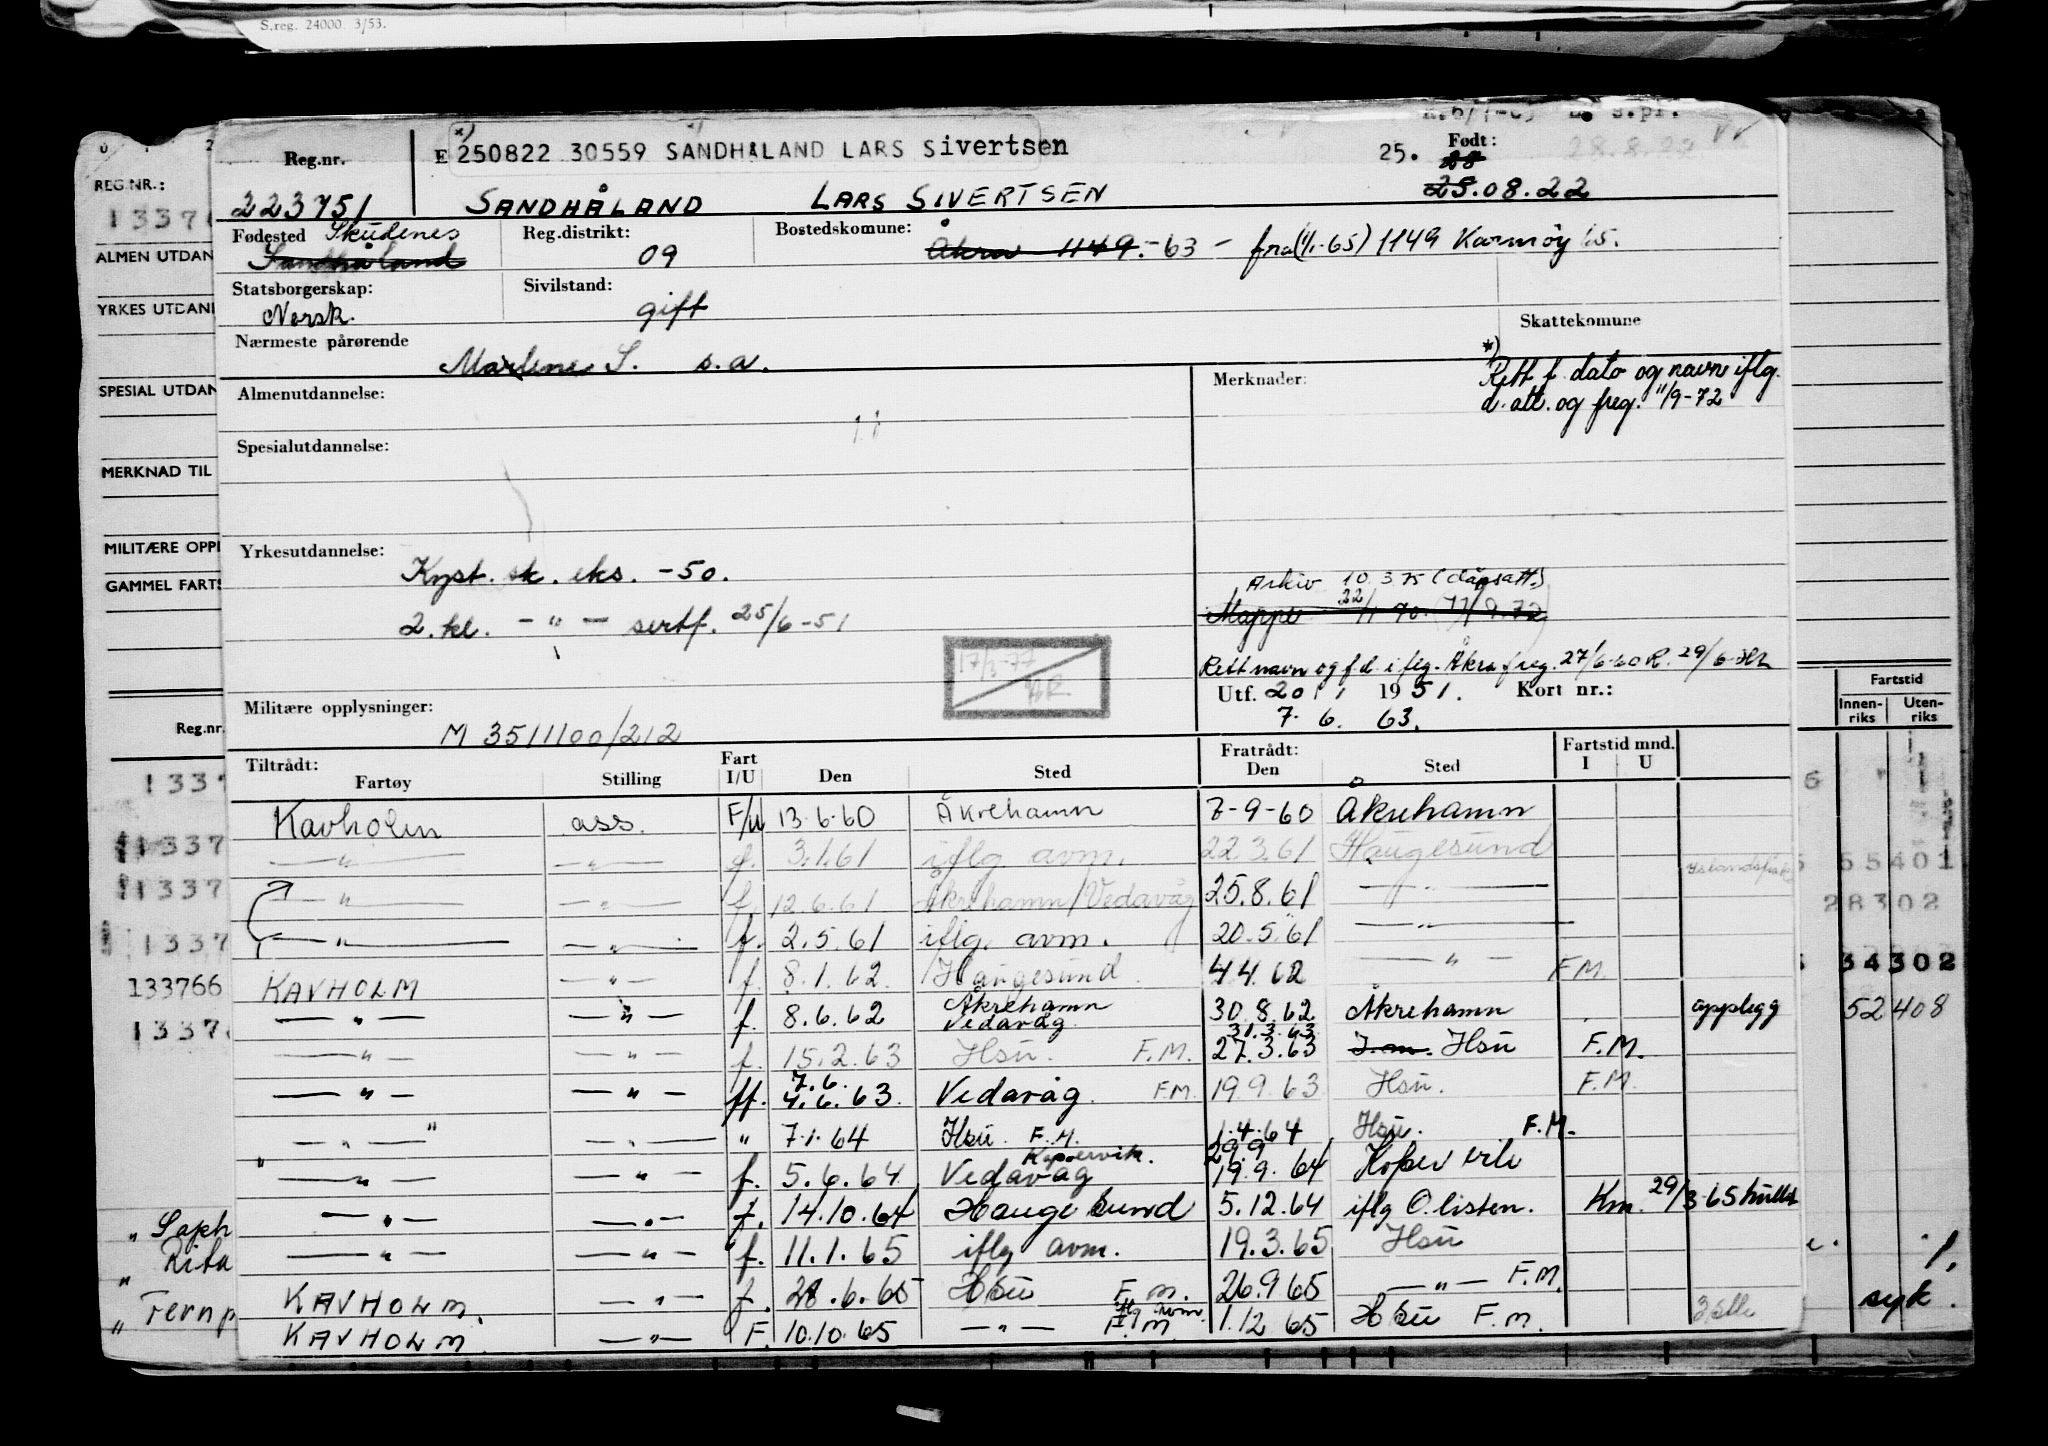 S.reg. 24000 3/53.
REG.NR.:
1337
ALMEN UTDAN
YRKES UTDANI
SPESIAL UTDAN
MERKNAD TIL
MILITÆRE OPPI
GAMMEL FARTS
Reg.nr.
1337
1337
1337
1337
133766
1337
„ Saph
„ Rita
„ Fernp
Reg.nr.
E *) 250822 30559 SANDHÅLAND LARS Sivertsen
25. Født:
28
28.8.22
223751
SANDHÅLAND LARS SIVERTSEN
25.08.22
Fødested Skudenes
Sandhåland
Reg.distrikt:
09
Bostedskomune:
Åkra 1149.-63 - fra (1/1-65) 1149 Karmøy 65.
Statsborgerskap:
Norsk.
Sivilstand:
gift
Skattekomune
Nærmeste pårørende
Marlene S. s.a.
Almenutdannelse:
Merknader:
*) Rett f. dato og navn iflg.
d. att. og freg. 11/9-72
Spesialutdannelse:
Yrkesutdannelse:
Kyst. sk. eks. -50.
2. kl. - " - sertf. 25/6-51
Arkiv 10.3.75 (dåpsatt.)
Mappe 22/1 70. 11/9.72
17/3-77
Rett navn og f.d. iflg. Åkra freg. 27/6-60 R. 29/6-
Utf. 20/1 1951. Kort nr.:
7. 6. 63.
Militære opplysninger:
M 3511100/212
Tiltrådt:
Fartøy Stilling Fart I/U Den Sted
Fratrådt:
Den Sted
Fartstid mnd.
I U
Kavholm ass. F/U 13.6.60 Åkrehamn 7-9-60 Åkrehamn
— " — — " — f. 3.1.61 iflg avm. 22.3.61 Haugesund
— " — — " — f. 12.6.61 Åkrehamn/Vedavåg 25.8.61 — Islandsfiske
— " — — " — f. 2.5.61 iflg. avm. 20.5.61 — " —
KAVHOLM — " — f. 8.1.62 Haugesund 4.4.62 — " — F.M.
— " — — " — f. 8.6.62 Åkrehamn Vedavåg 30.8.62 Åkrehamn opplegg
— " — — " — f. 15.2.63 Hsu. F.M. 31.3.63 27.3.63 I.m. Hsu F.M.
— " — — " — ff. 7.6. 4.6.63. Vedavåg. F.M. 19.9.63 Hsu. F.M.
— " — — " — " 7.1.64 Hsu. F.M. 1.4.64 Hsu. F.M.
— " — — " — f. 5.6.64 Vedavåg Kopervik. 29.9 19.9.64 Kopervik
— " — — " — f. 14.10.64 Haugesund 5.12.64 iflg O.listen. Km. 29/3-65
— " — — " — f. 11.1.65 iflg avm. 19.3.65 Hsu
KAVHOLM. — " — f. 28.6.65 Hsu F.m. 26.9.65 — " — F.M.
KAVHOLM. — " — F. 10.10.65 — " — iflg avm. F.M. 1.12.65 Hsu F.m.
Fartstid
Innen-
riks
Uten-
riks
55401
28302
34302
52408
syk.